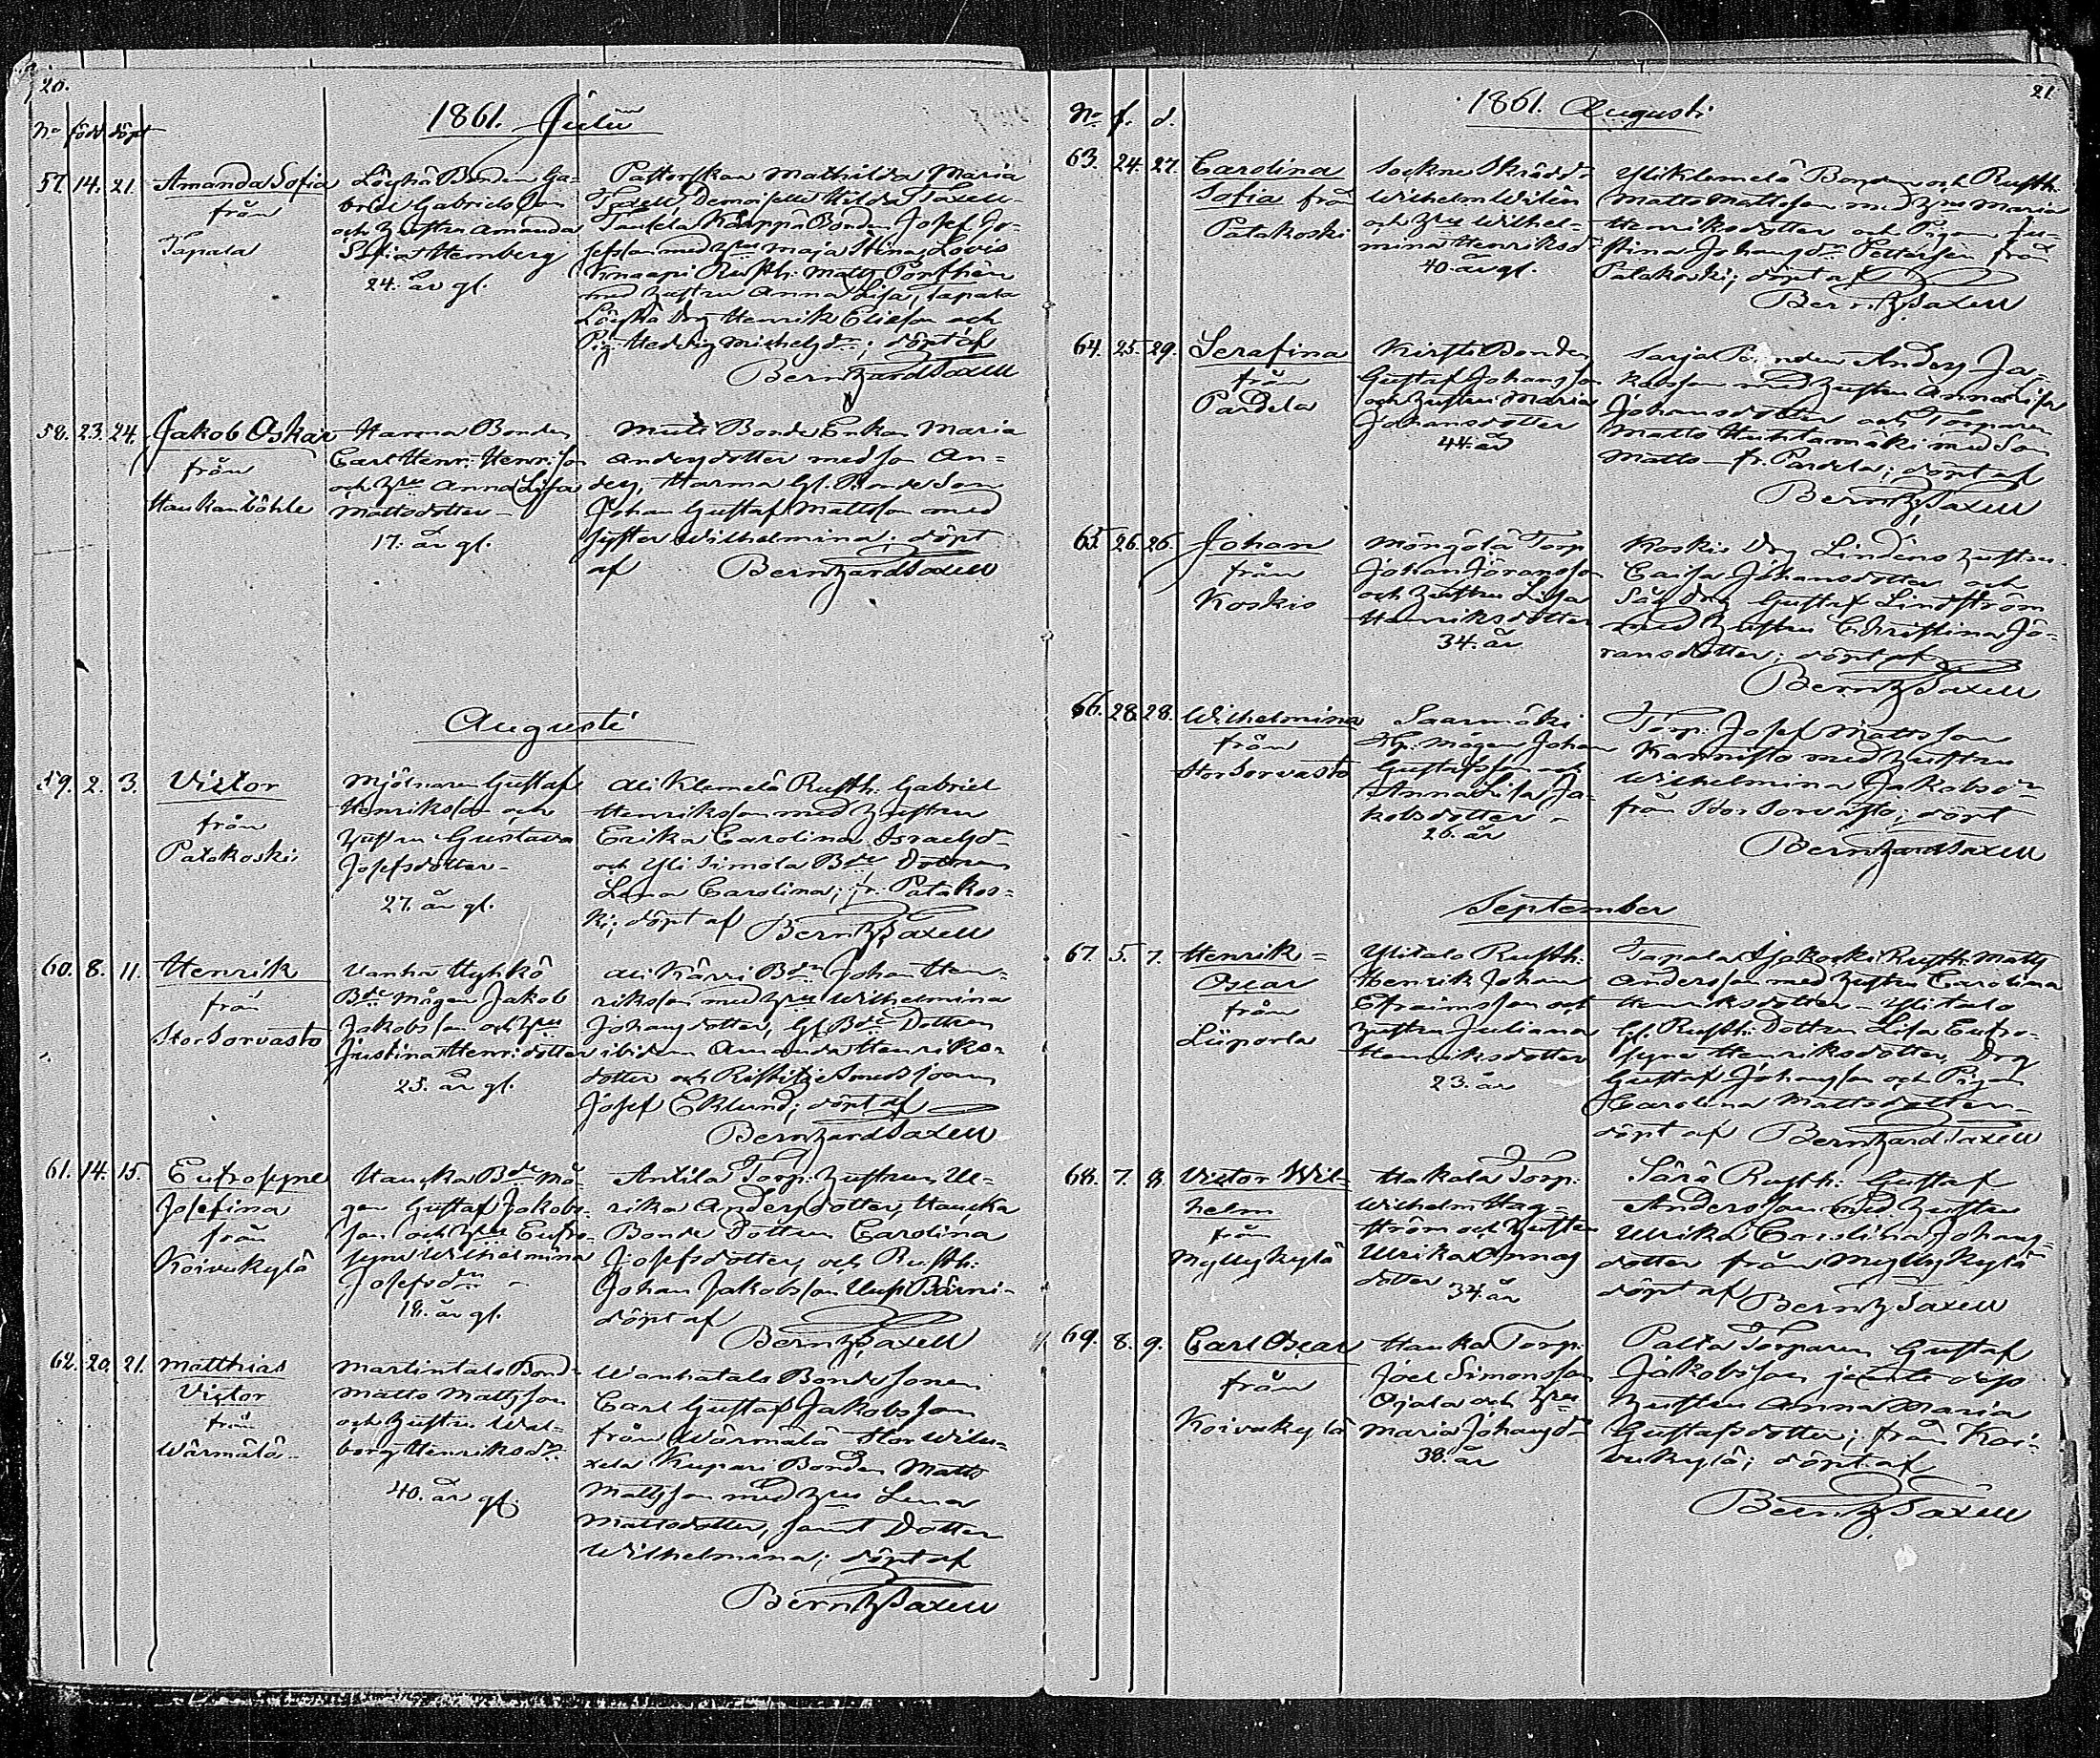 20.
1861. Julii
No född döpt
57. 14. 21. Amanda Sofia
från
Tapala
Löyhä Bonden Ga-
briel Gabrielsson
och hustru Amanda
Sofia Sternberg
24. år gl.
Pastorskan Mathilda Maria
Taxell Demoiselle Hilda Taxell
Käppä Bonden Josef Jo-
sefsson med hru Maja Stina, Lovis
Knaapi Rusth. Matts
med hustru Anna Lisa, Tapala
Löyhä Drg Henrik Eliasson och
Pig. Hedvig Michelsdr; döpt af
Bernhard Taxell
58. 23. 24. Jakob Oskar
från
Haukanböhle
Harma Bonden
Carl Henr. Henr.son
och hru Anna Lisa
Mattsdotter
17. år gl.
Bonde Enkan Maria
Andersdotter med son An-
ders, Harma Gl. Bonde Son
Johan Gustaf Mattsson med
syster Wilhelmina; döpt
af Bernhard Taxell
Augusti
59. 2. 3. Victor
från
Patakoski
Mjölnaren Gustaf
Henriksson och
hustru Gustava
Josefsdotter
27. år gl.
Ali Klemelä Rusth. Gabriel
Henriksson med hustru
Erika Carolina Israelsd
och Yli Simola Bde Dottren
Lena Carolina; fr. Patakos-
ki; döpt af Bernh Taxell
60. 8. 11. Henrik
från
Stor Sorvasto
Vanha Hyhkö
Bde Mågen Jakob
Jakobsson och hru
Justina Henr:dotter
25. år gl.
Ali Kärri Bdn Johan Hen-
riksson med hru Wilhelmina
Johansdotter, Gl. Bde Dottren
ibidem Amanda Henriks-
dotter och
Josef Eklund; döpt af
Bernhard Taxell
61. 14. 15. Eufrosyne
Josefina
från
Koivukylä
Haucka Bde Må-
gen Gustaf Jakobs-
son och hru Eufro-
syne Wilhelmina
Josefsdr
18. år gl.
Antila Torp. hustrun Ul-
rika Andersdotter, Haucka
Bonde Dottren Carolina
Josefsdotter och Rusth.
Johan Jakobsson
döpt af
Bernh Taxell
62. 20. 21. Matthias
Victor
från
Wärmälä
Martintalo Bond.
Matts Mattsson
och hustru Wal-
borg Henriksdr
40. år gl.
Wanhatalo Bonde Sonen
Carl Gustaf Jakobsson
från Wärmälä Stor Wilu-
xela Kupari Bonden Matts
Mattsson med hru Lena
Mattsdotter, samt Dotter
Wilhelmina; döpt af
Bernh Taxell
21
1861. Augusti
No f. d.
63. 24. 27. Carolina
Sofia från
Patakoski
Sockne Skrädd.
Wilhelm Wilén
och hru Wilhel-
mina Henriksdr
40. år gl.
Yliklemelä Bonden och Rusth.
Matts Mattsson med hru Maria
Henriksdotter och Pigan Ju-
stina Johansdr Pettersén från
Patakoski; döpt af
Bernh Taxell
64. 25. 29. Serafina
från
Pardela
Kirsti Bonden
Gustaf Johansson
och hustru Maria
Johansdotter
44. år
Sarja Bonden Anders Ja-
kobsson med hustru Anna Lisa
Johansdotter och Torparen
Matts Huhtamäki med Son
Matts fr. Pardela; döpt af
Bernh Taxell
65. 26. 26. Johan
från
Koskis
Möngölä Torp.
Johan Göransson
och hustru Lisa
Henriksdotter
34. år
Koskis Drg Lindéns hustru
Caisa Johansdotter och
Drg Gustaf Lindström
med hustru Christina Jö-
ransdotter; döpt af
Bernh Taxell
66. 28. 28. Wilhelmina
från
Stor Sorvasto
Saarmäki
Mågen Johan
Gustafsson och
Anna Lisa Ja-
kobsdotter
26. år
Torp. Josef Mattsson
Kannisto med hustru
Wilhelmina Jakobsdr
från Stor Sorvasto; döpt
Bernhard Taxell
September
67. 5. 7. Henrik
Oscar
från
Liiporla
Ylitalo Rusth.
Henrik Johan
Efraimsson och
hustru Juliana
Henriksdotter
23. år
Tapala Rusth. Matts
Andersson med hustru Carolina
Henriksdotter Ylitalo
Gl. Rusth: Dottren Lisa Eufro-
syne Henriksdotter, Drg
Gustaf Johansson och Pigan
Carolina Mattsdotter
döpt af Bernhard Taxell
68. 7. 8. Victor Wil-
helm
från
Myllykylä
Hakala Torp.
Wilhelm Hag-
ström och hustru
Ulrika Anna
dotter 34. år
Särä Rusth: Gustaf
Andersson med hustru
Ulrika Carolina Johans-
dotter från Myllykylä
döpt af Bernh Taxell
69. 8. 9. Carl Oscar
från
Koivukylä
Hauka Torp.
Joel Simonsson
Ojala och hru
Maria Johansd
38. år
Palta Torparen Gustaf
Jakobsson jemte dess
hustru Anna Maria
Gustafsdotter; från Koi-
vukylä; döpt af
Bernh Taxell